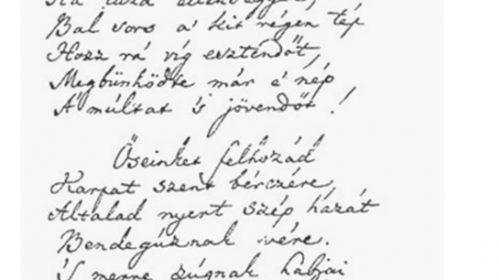 Ha küzd ellenségvel,
Bal sors a' kit régen tép
Hozz rá víg esztendőt,
Megbünhödte már e' nép
A' múltat 's jövendőt!
Őseinket felhozád
Karpat szent bérczére,
Általad nyert szép hazát
Bendegúznak vére.
'S merre zúgnak habjai